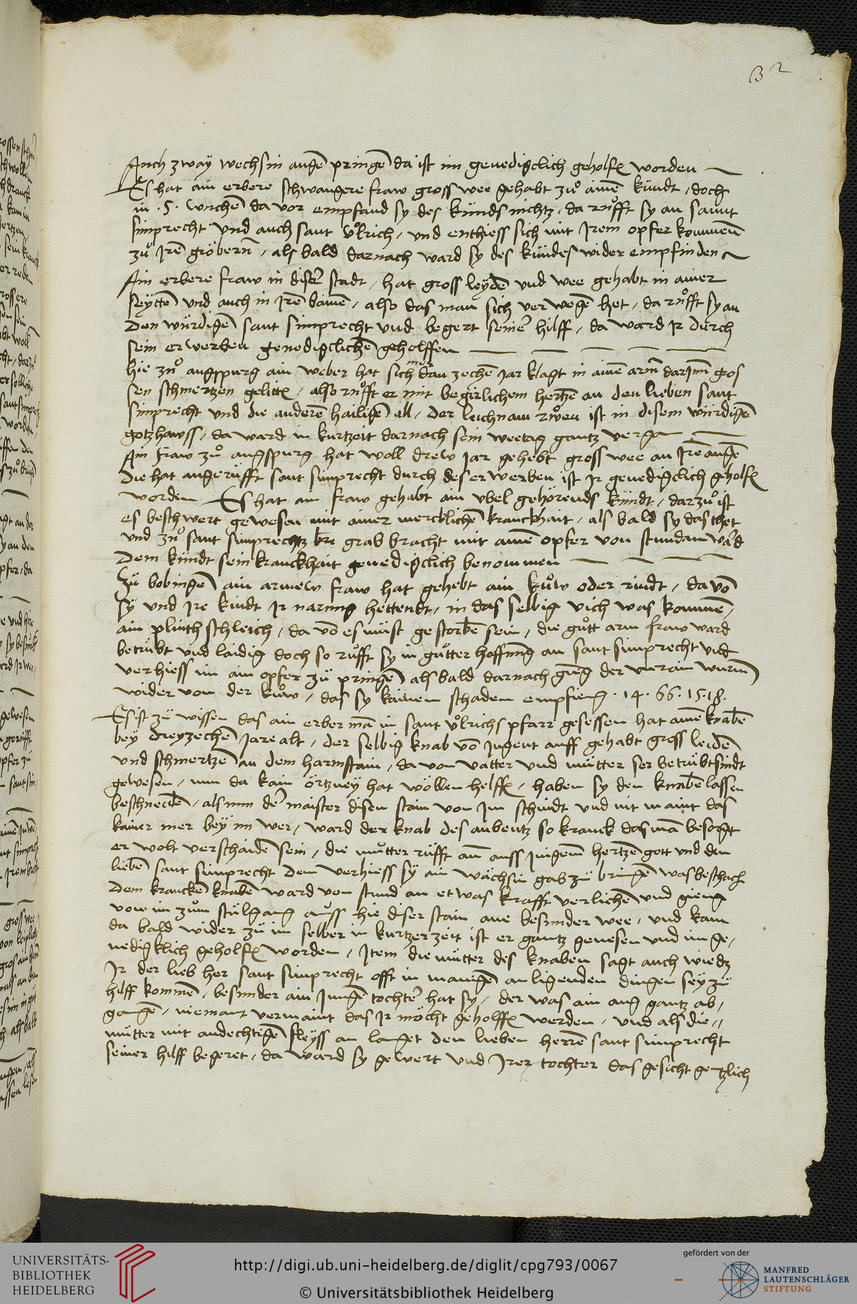 32
Auch zway wechsin augē pringē da ist im genedigclich geholfē worden
Es hat ain erbere schwangere fraw gross wee gehabt zuͦ aīnē kindt / doch
in · 5 · wochen da vor empfand sy des kinds nichtz / da ruͦfft sy an sannt
simprecht vnd auch sant vͦlrich / vnd enthiess sich mit Irem opfer kommen
zuͦ Irē gröbern / als bald darnach ward sy des kindes wider empfinden
Ain erbere fraw in diser stadt / hat gross leydē vnd wee gehabt in ainer
seyttē vnd auch in Irē bainē / also das man sich verwegē het / da ruͦfft sy an
Den wurdigē sant simprecht vnd begert seiner hilff / da ward Ir durch
sein erwerben genedigclichē geholffen
hie zuͦ augspurg ain weber hat sich mer dan zechē jar klagt in ainē arm darinn gros
sen schmertzen gelittē / also ruͦfft er mit begirlichem hertzē an den lieben sant
simprecht vnd die anderē hailigē all / der leichnam ruͦen ist in disem wirdigē
gotzhawss / da ward in kurtzeit darnach sein weetag gantz vergā
Ain fraw zuͦ augspurg hat woll drew jar gehebt gross wee an Irē augē
Die hat angeruͦfft sant simprecht durch des erwerben ist Ir genedigclich geholfē
worden Es hat ain fraw gehabt ain vbel gehörends kindt / darzuͦ ist
es beschwert gewesen mit ainer mercklichē kranckhait / als bald sy das thet
vnd zuͦ sant simprechtz grab bracht mit ainē opfer von stundan ward
Dem kindt sein kranckhait genedigclich benommen
Zuͦ bobingē ain armew fraw hat gehebt ain kuͦw oder rindt / da vō
sy vnd Ire kindt Ir narung hettendt / in das selbig vich was kommē
ain plinthschleich / da vō es muͦst gestorbē sein / die guͦtt arm fraw ward
betruͦbt vnd laidig doch so ruͦfft sy in guͦtter hoffnung an sant simprecht vnd
verhiess im ain opfer zuͦ pringē als bald darnach gieng der vnrain wurm
wider von der kuͦw / das sy kainen schaden empfieng · 14 · 66 · 15 · 18 ·
Es ist zuͦ wissen das ain erber mā in sant vͦlrichs pfarr gesessen hat ainē knabē
bey dreyzechē Jare alt / der selbig knab vō jugent auff gehabt gross leidē
vnd schmertzē an dem harmstain / da von vatter vnd muͦtter ser betruͦbt sindt
gewesen / nun da kain örtzney hat wöllen helffē / haben sy den knabē lassen
beschneidē / als nun der maister disen stain von Im schnidt vnd nit maint das
kainer mer bey im wer / ward der knab des aubentz so kranck das mā besorgt
er wolt verschaidē sein / die muͦtter ruͦfft an auss Inigem hertzē gott vnd den
liebē sant simprecht dem verhiess sy ain wächsin gab zuͦ bringē was beschach
Dem kranckē knabē ward von stund an etwas krafft verlichē vnd gieng
von im zum stuͦlgang auss hie diser stain ane besunder wee / vnd kam
da bald wider zuͦ im selber in kurtzer zeit ist er gantz genesen vnd im ge /
nedigklich geholfē worden / Item die muͦtter des knaben sagt auch wie dz
Ir der lieb her sant simprecht offt in manigē anligenden dingen sey zuͦ
hilff kommē / besunder ain jungē tochter hat sy / der was ain aug gantz ab /
gangē / niemant vermaint das Ir möcht geholffē werden / vnd als die //
muͦtter mit andechtigē fleyss an langet den lieben herrē sant simprecht
seiner hilff begeret / da ward sy gewert vnd Irer tochter das gesicht gentzlich
UNIVERSITÄTS-
BIBLIOTHEK
HEIDELBERG
http://digi.ub.uni-heidelberg.de/diglit/cpg793/0067
© Universitätsbibliothek Heidelberg
gefördert von der
MANFRED
LAUTENSCHLÄGER
STIFTUNG